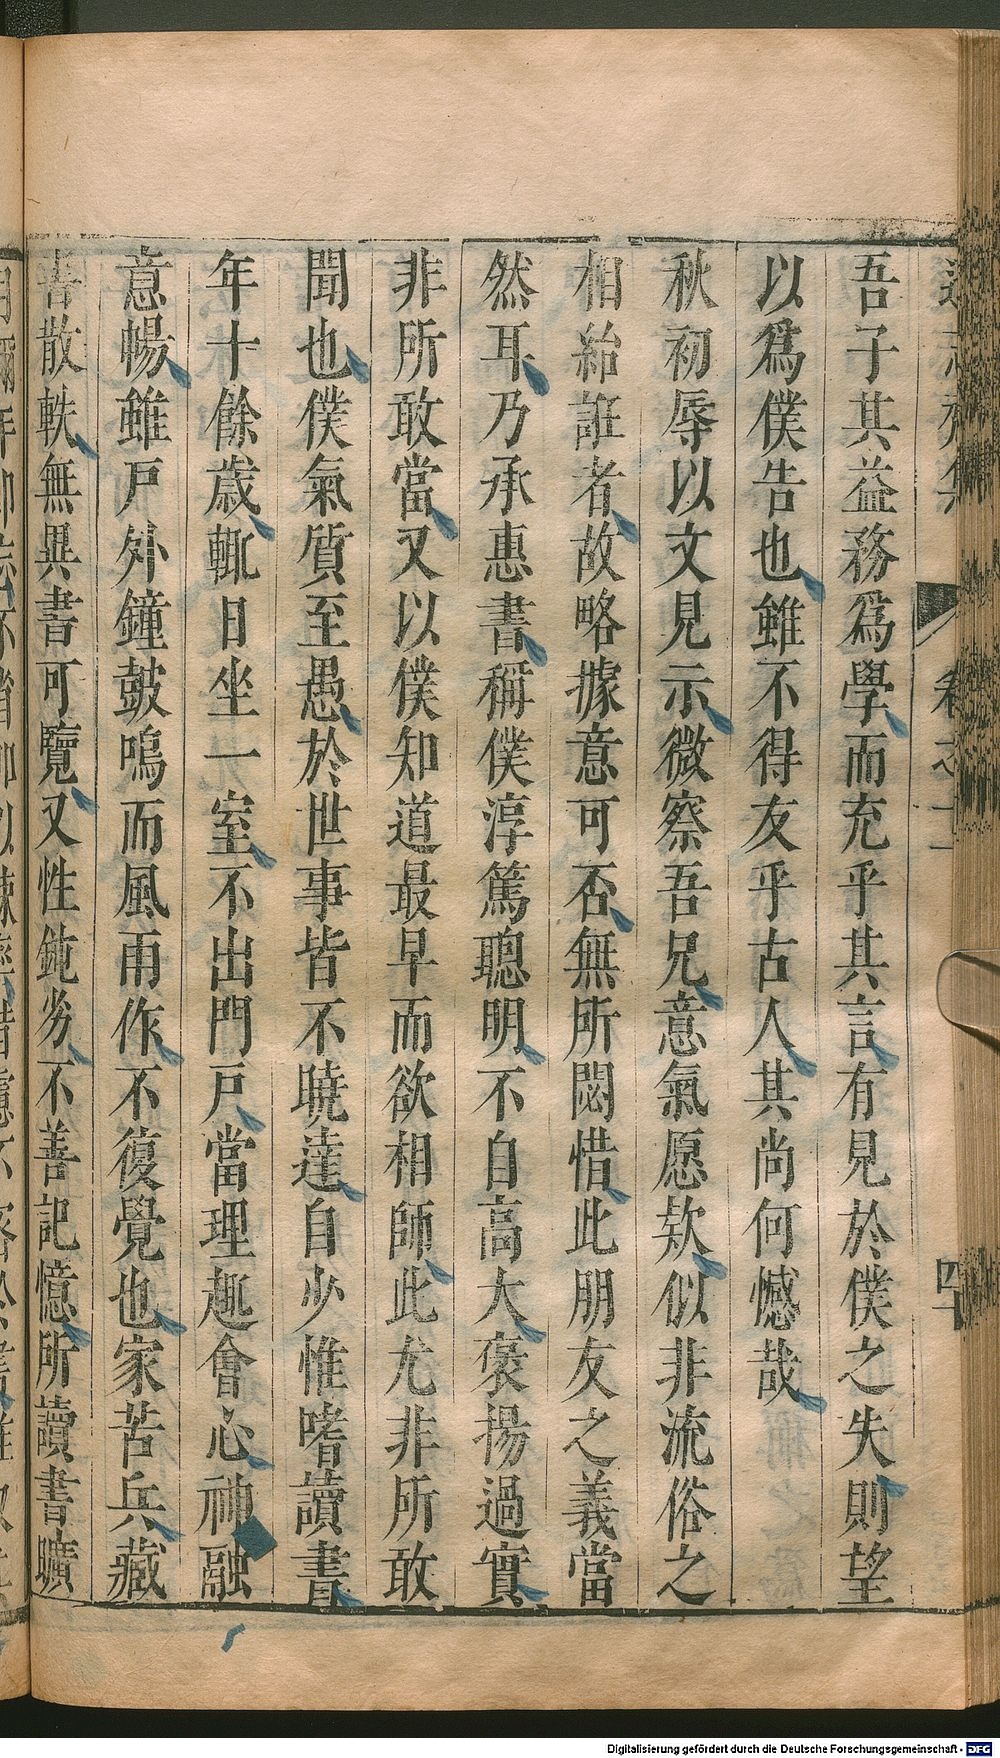 吾子其益務爲學而充乎其言有見於僕之失則望
以爲僕告也雖不得友乎古人其尚何憾哉
秋初辱以文見示微察吾兄意氣愿欵似非流俗之
相紿誑者故略據意可否無所悶惜此朋友之義當
然耳乃承惠書稱僕淳篤聰明不自高大褒揚過實
非所敢當又以僕知道最早而欲相師此尤非所敢
聞也僕氣質至愚於世事皆不曉達自少惟嗜讀書
年十餘歲輒日坐一室不出門戸當理趣會心神融
意暢雖戸外鐘鼓鳴而風雨作不復覺也家苦兵藏
書散軼無異書可覽又性鈍劣不善記憶所讀書曠
Digitalisierung gefördert durch die Deutsche Forschungsgemeinschaft - DFG